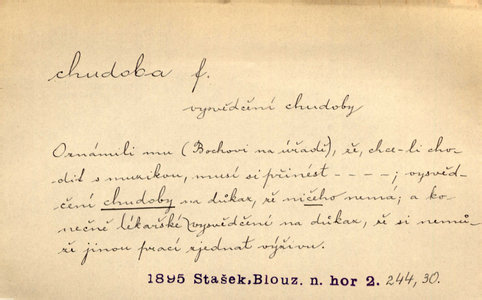 chudoba f.
vysvědčení chudoby
Oznámili mu (Bochovi na úřadě), že, chce-li cho-
dit s muzikou, musí si přinést - - - - ; vysvěd-
čení chudoby na důkaz, že ničeho nemá; a ko-
nečně lékařské) vysvědčení na důkaz, že si nemů-
že jinou prací zjednat výživu.
1895 Stašek, Blouz. n. hor 2. 244, 30.